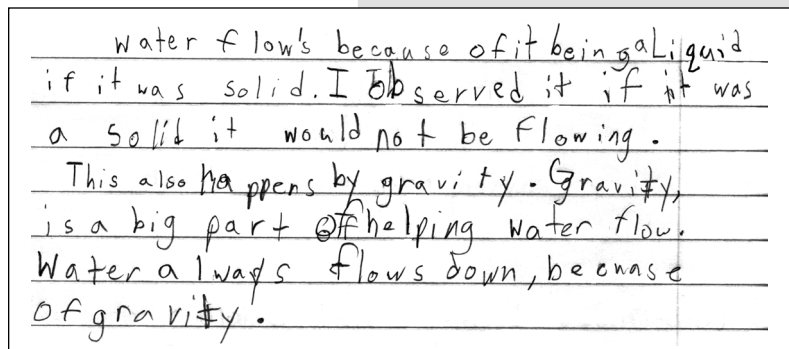 water flow's because of it being a Liquid
if it was solid. I Observed it if it was
a solid it would not be flowing.
This also happens by gravity. Gravity,
is a big part of helping water flow.
Water always flows down, becuase
of gravity.